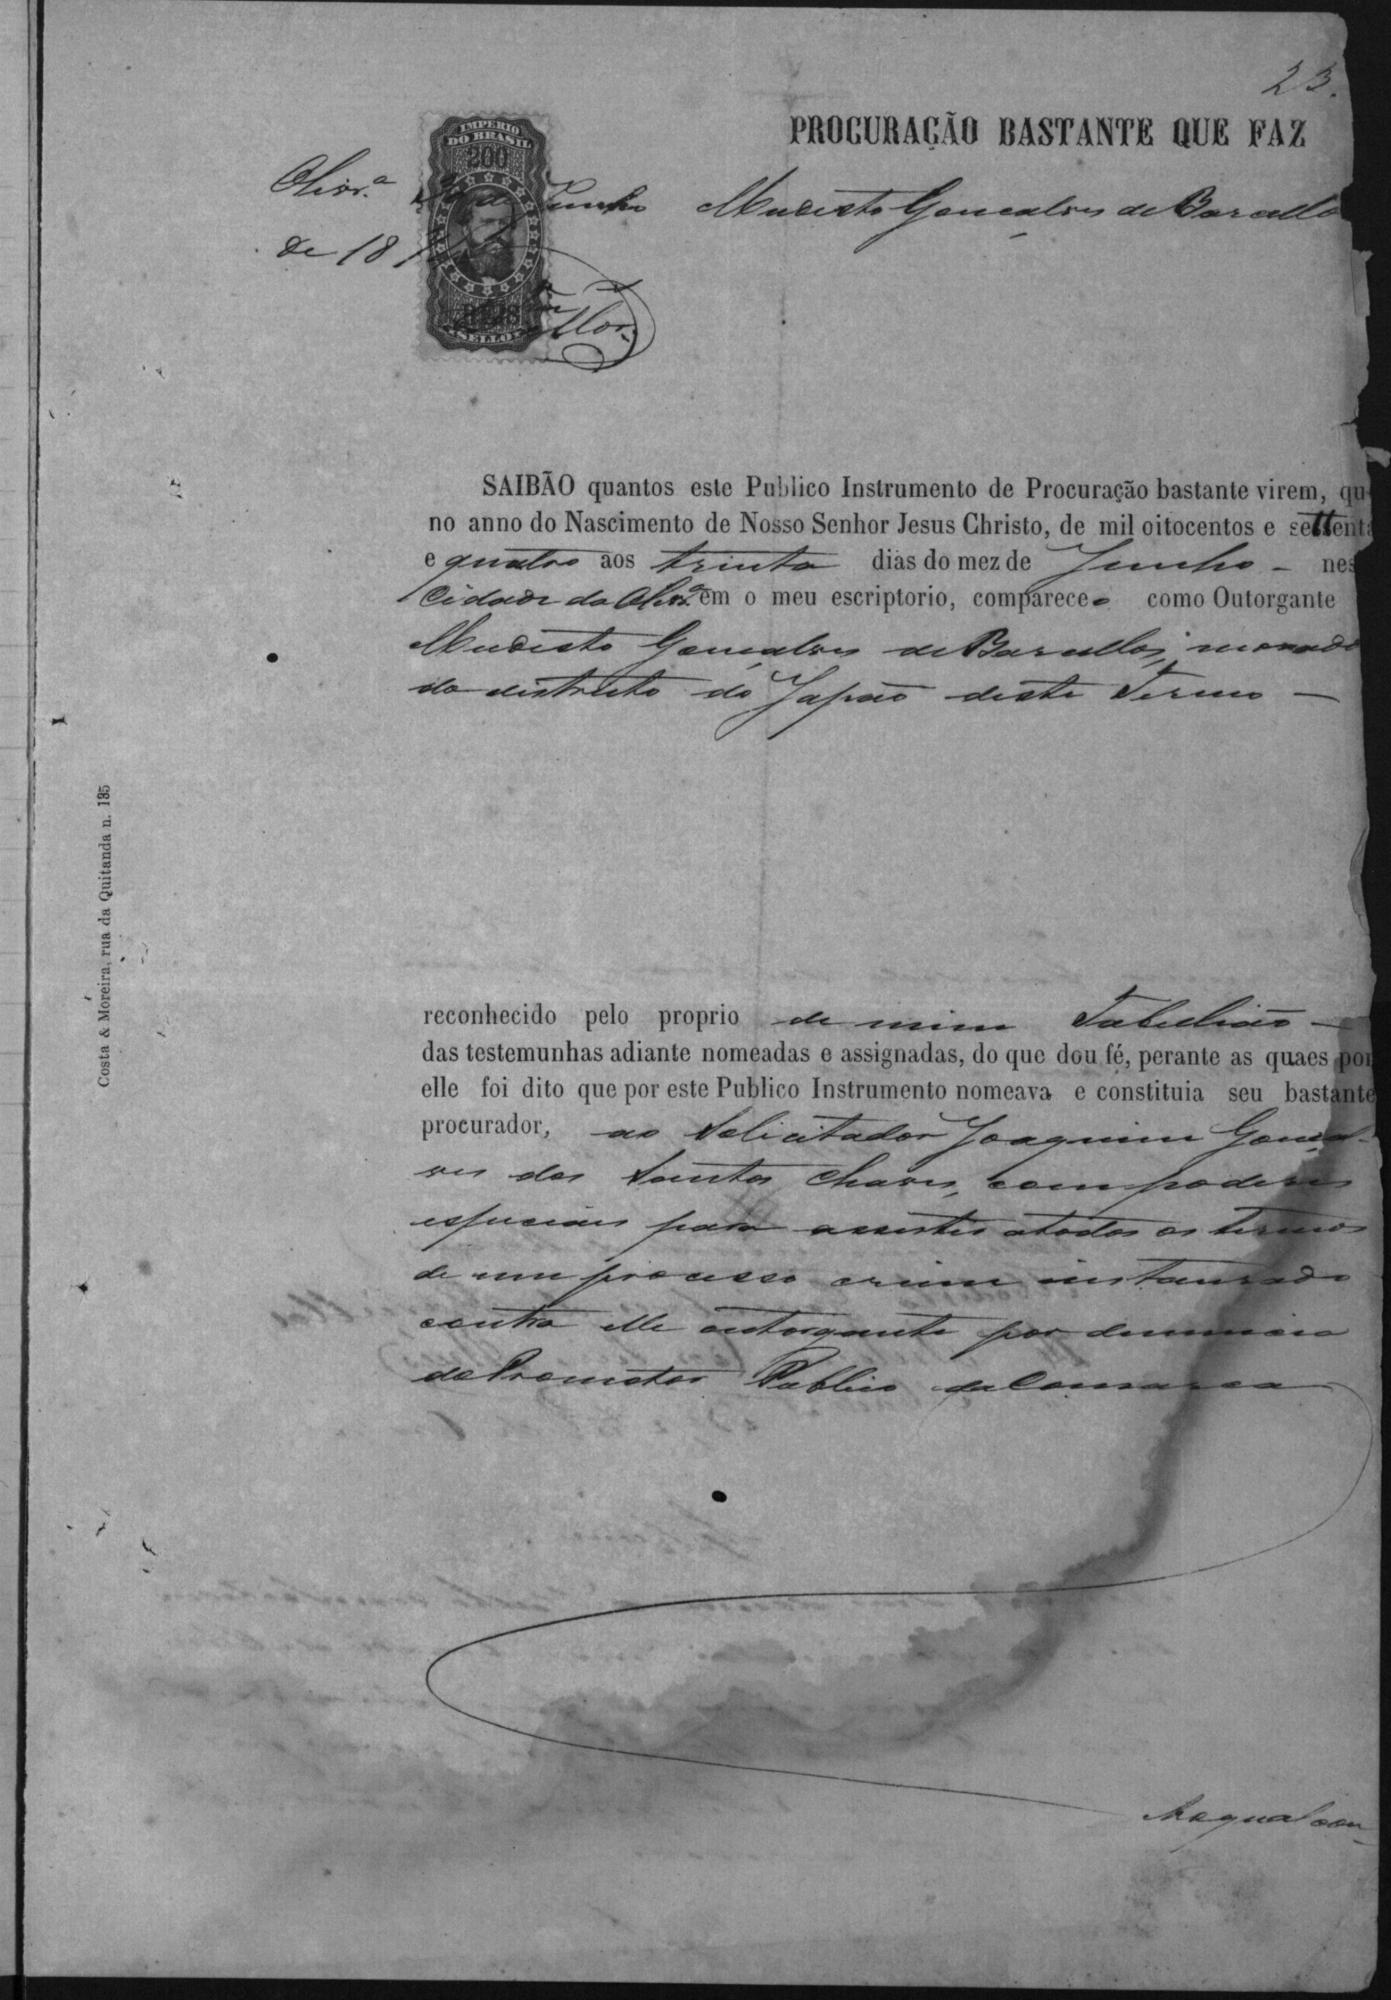 23.
PROCURAÇÃO BASTANTE QUE FAZ
IMPERIO
DO BRASIL
200
REIS
SELLO
Olivr.ª 30 de Junho
de 18
Modesto Gonçalves de Barcello
SAIBÃO quantos este Publico Instrumento de Procuração bastante virem, qu
no anno do Nascimento de Nosso Senhor Jesus Christo, de mil oitocentos e settenta
e quatro aos trinta dias do mez de Junho - nes
Cidade da Olivr.ª em o meu escriptorio, comparece como Outorgante
Modesto Gonçalves de Barcellos, morado
do districto do Japão deste Termo —
reconhecido pelo proprio de mim Tabelião —
das testemunhas adiante nomeadas e assignadas, do que dou fé, perante as quaes por
elle foi dito que por este Publico Instrumento nomeava e constituia seu bastante
procurador, ao Solicitador Joaquim Gonçal-
ves dos Santos Chaves, com poderes
especiais para assistir a todos os termos
de um processo crime instaurado
contra elle outorgante por denuncia
do Promotor Publico da Comarca
Ao qual con-
Costa & Moreira, rua da Quitanda n. 135